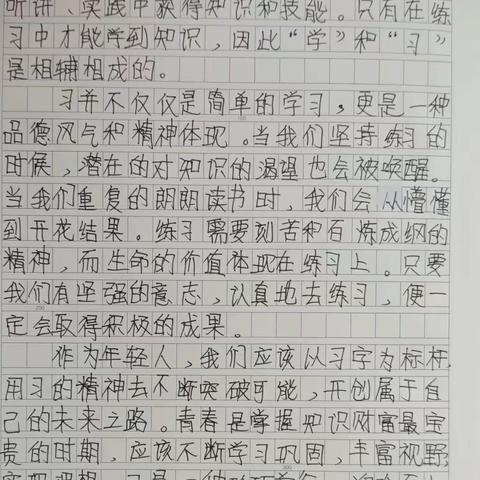 听讲、实践中获得知识和技能。只有在练
习中才能学到知识，因此“学”和“习”
是相辅相成的。
习并不仅仅是简单的学习，更是一种
品德风气和精神体现。当我们坚持练习的
时候，潜在的对知识的渴望也会被唤醒。
当我们重复的朗朗读书时，我们会从懵懂
到开花结果。练习需要刻苦和百炼成纲的
精神，而生命的价值体现在练习上。只要
我们有坚强的意志，认真地去练习，便一
定会取得积极的成果。
作为年轻人，我们应该以习字为标杆，
用习的精神去不断突破可能，开创属于自
己的未来之路。青春是掌握知识财富最宝
贵的时期，应该不断学习巩固，丰富视野，